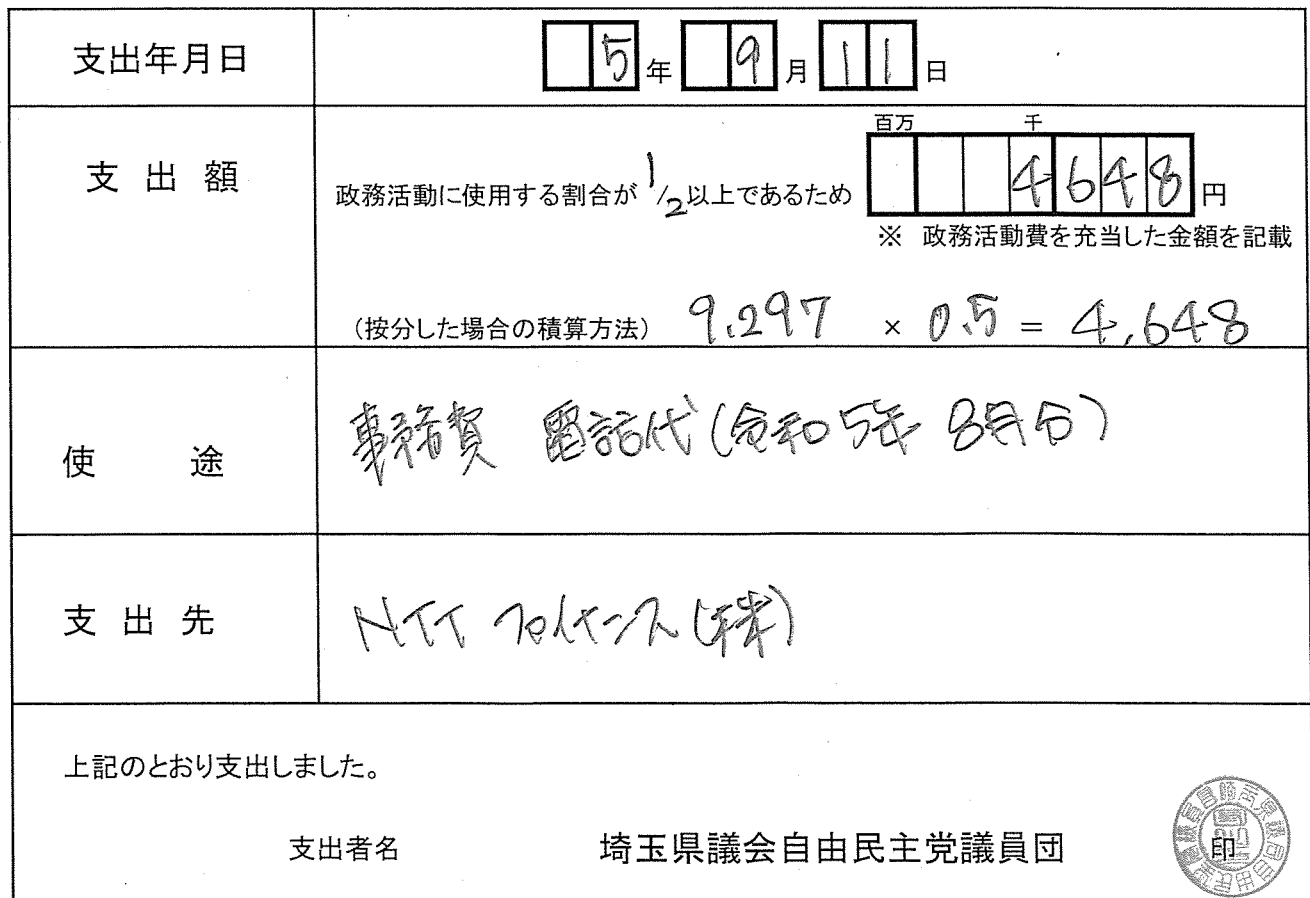 支出年月日 5年 9月 11日
百万 千
支出額 政務活動に使用する割合が1/2以上であるため 4648円
※ 政務活動費を充当した金額を記載
(按分した場合の積算方法) 9.297 × 0.5 = 4,648
使途 事務費 電話代(令和5年 8月分)
支出先 NTT ファイナンス(株)
上記のとおり支出しました。
支出者名 埼玉県議会自由民主党議員団 印